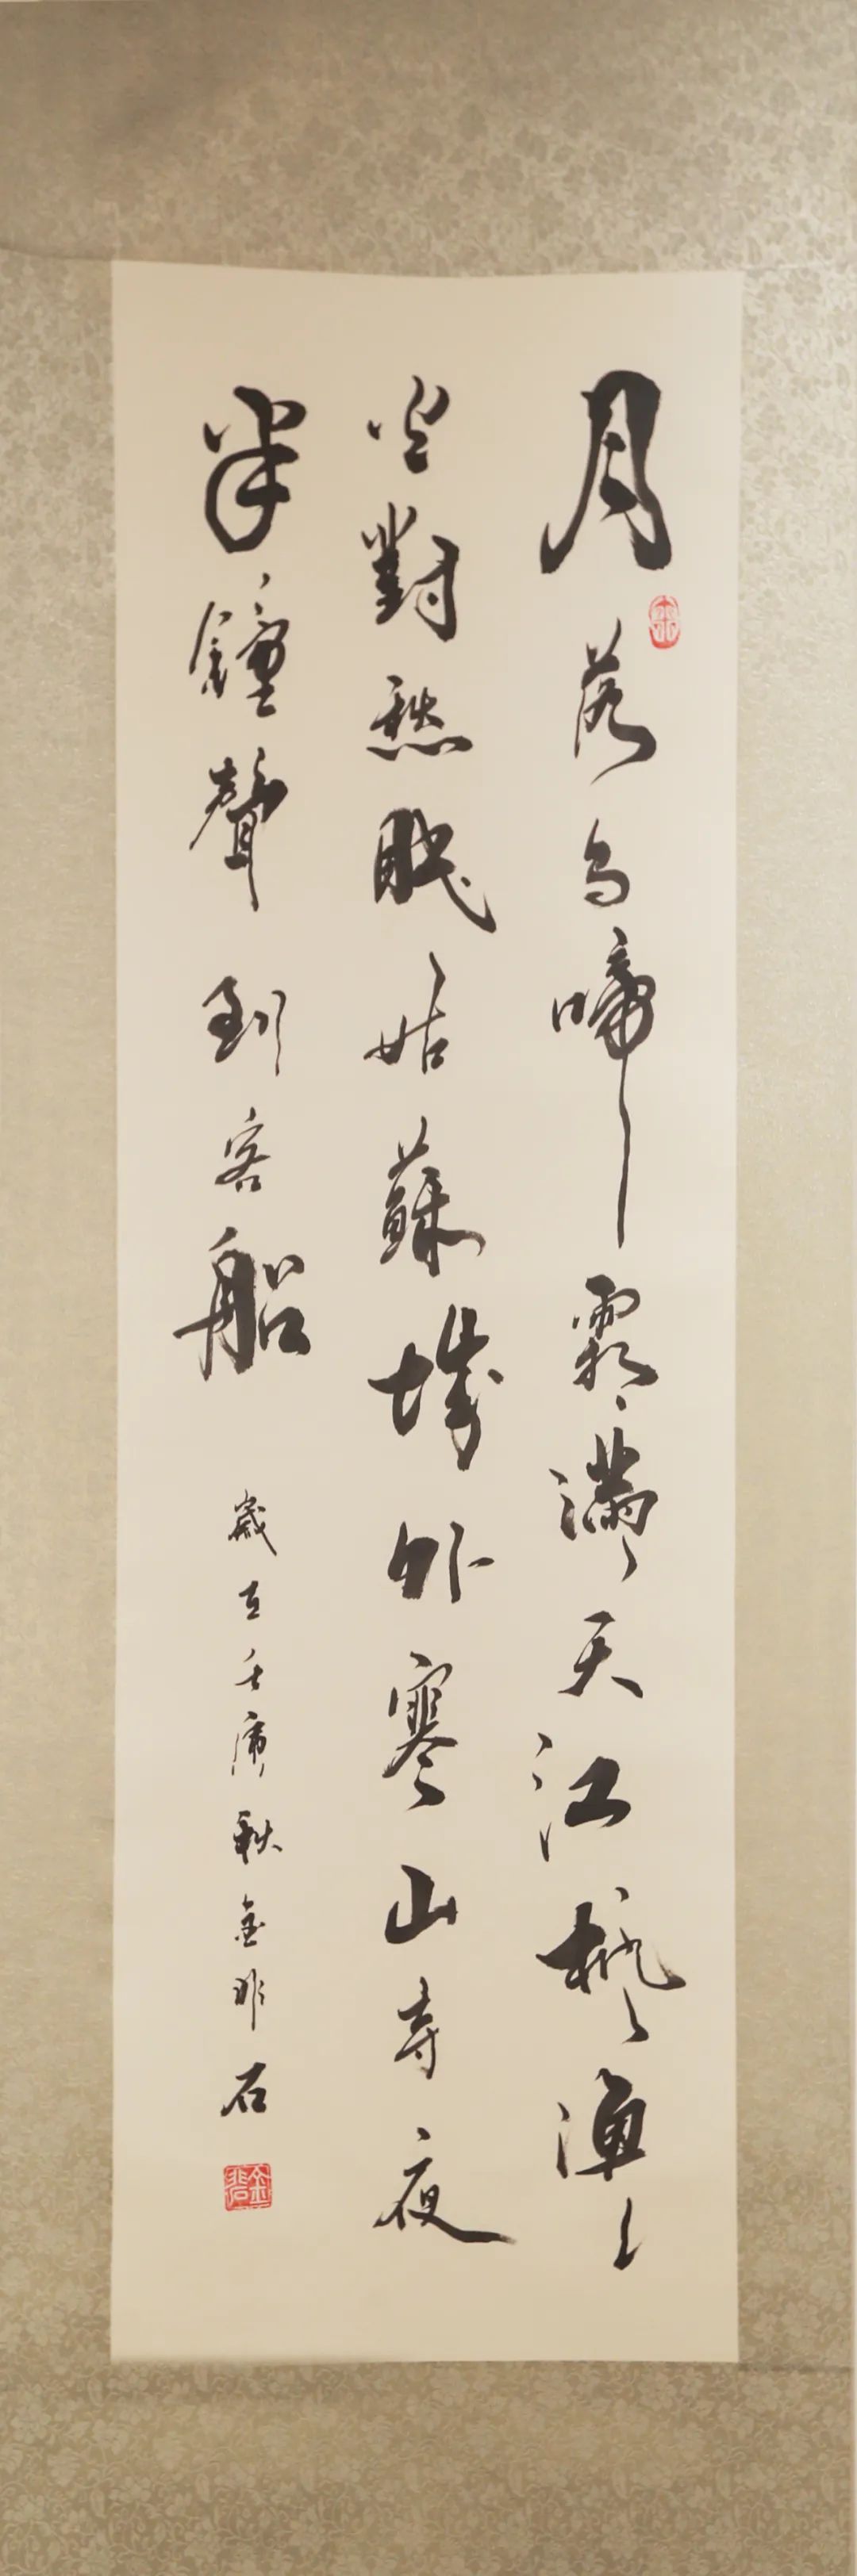 月落烏啼霜滿天江楓漁
火對愁眠姑蘇城外寒山寺夜
半鐘聲到客船
歲在壬虎秋金非石